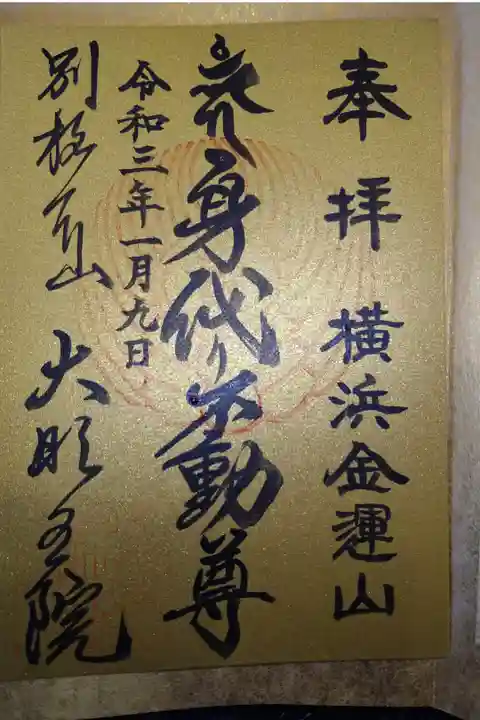 奉拝 横浜金運山
身代り不動尊
令和三年一月九日
別格本山 大明王院